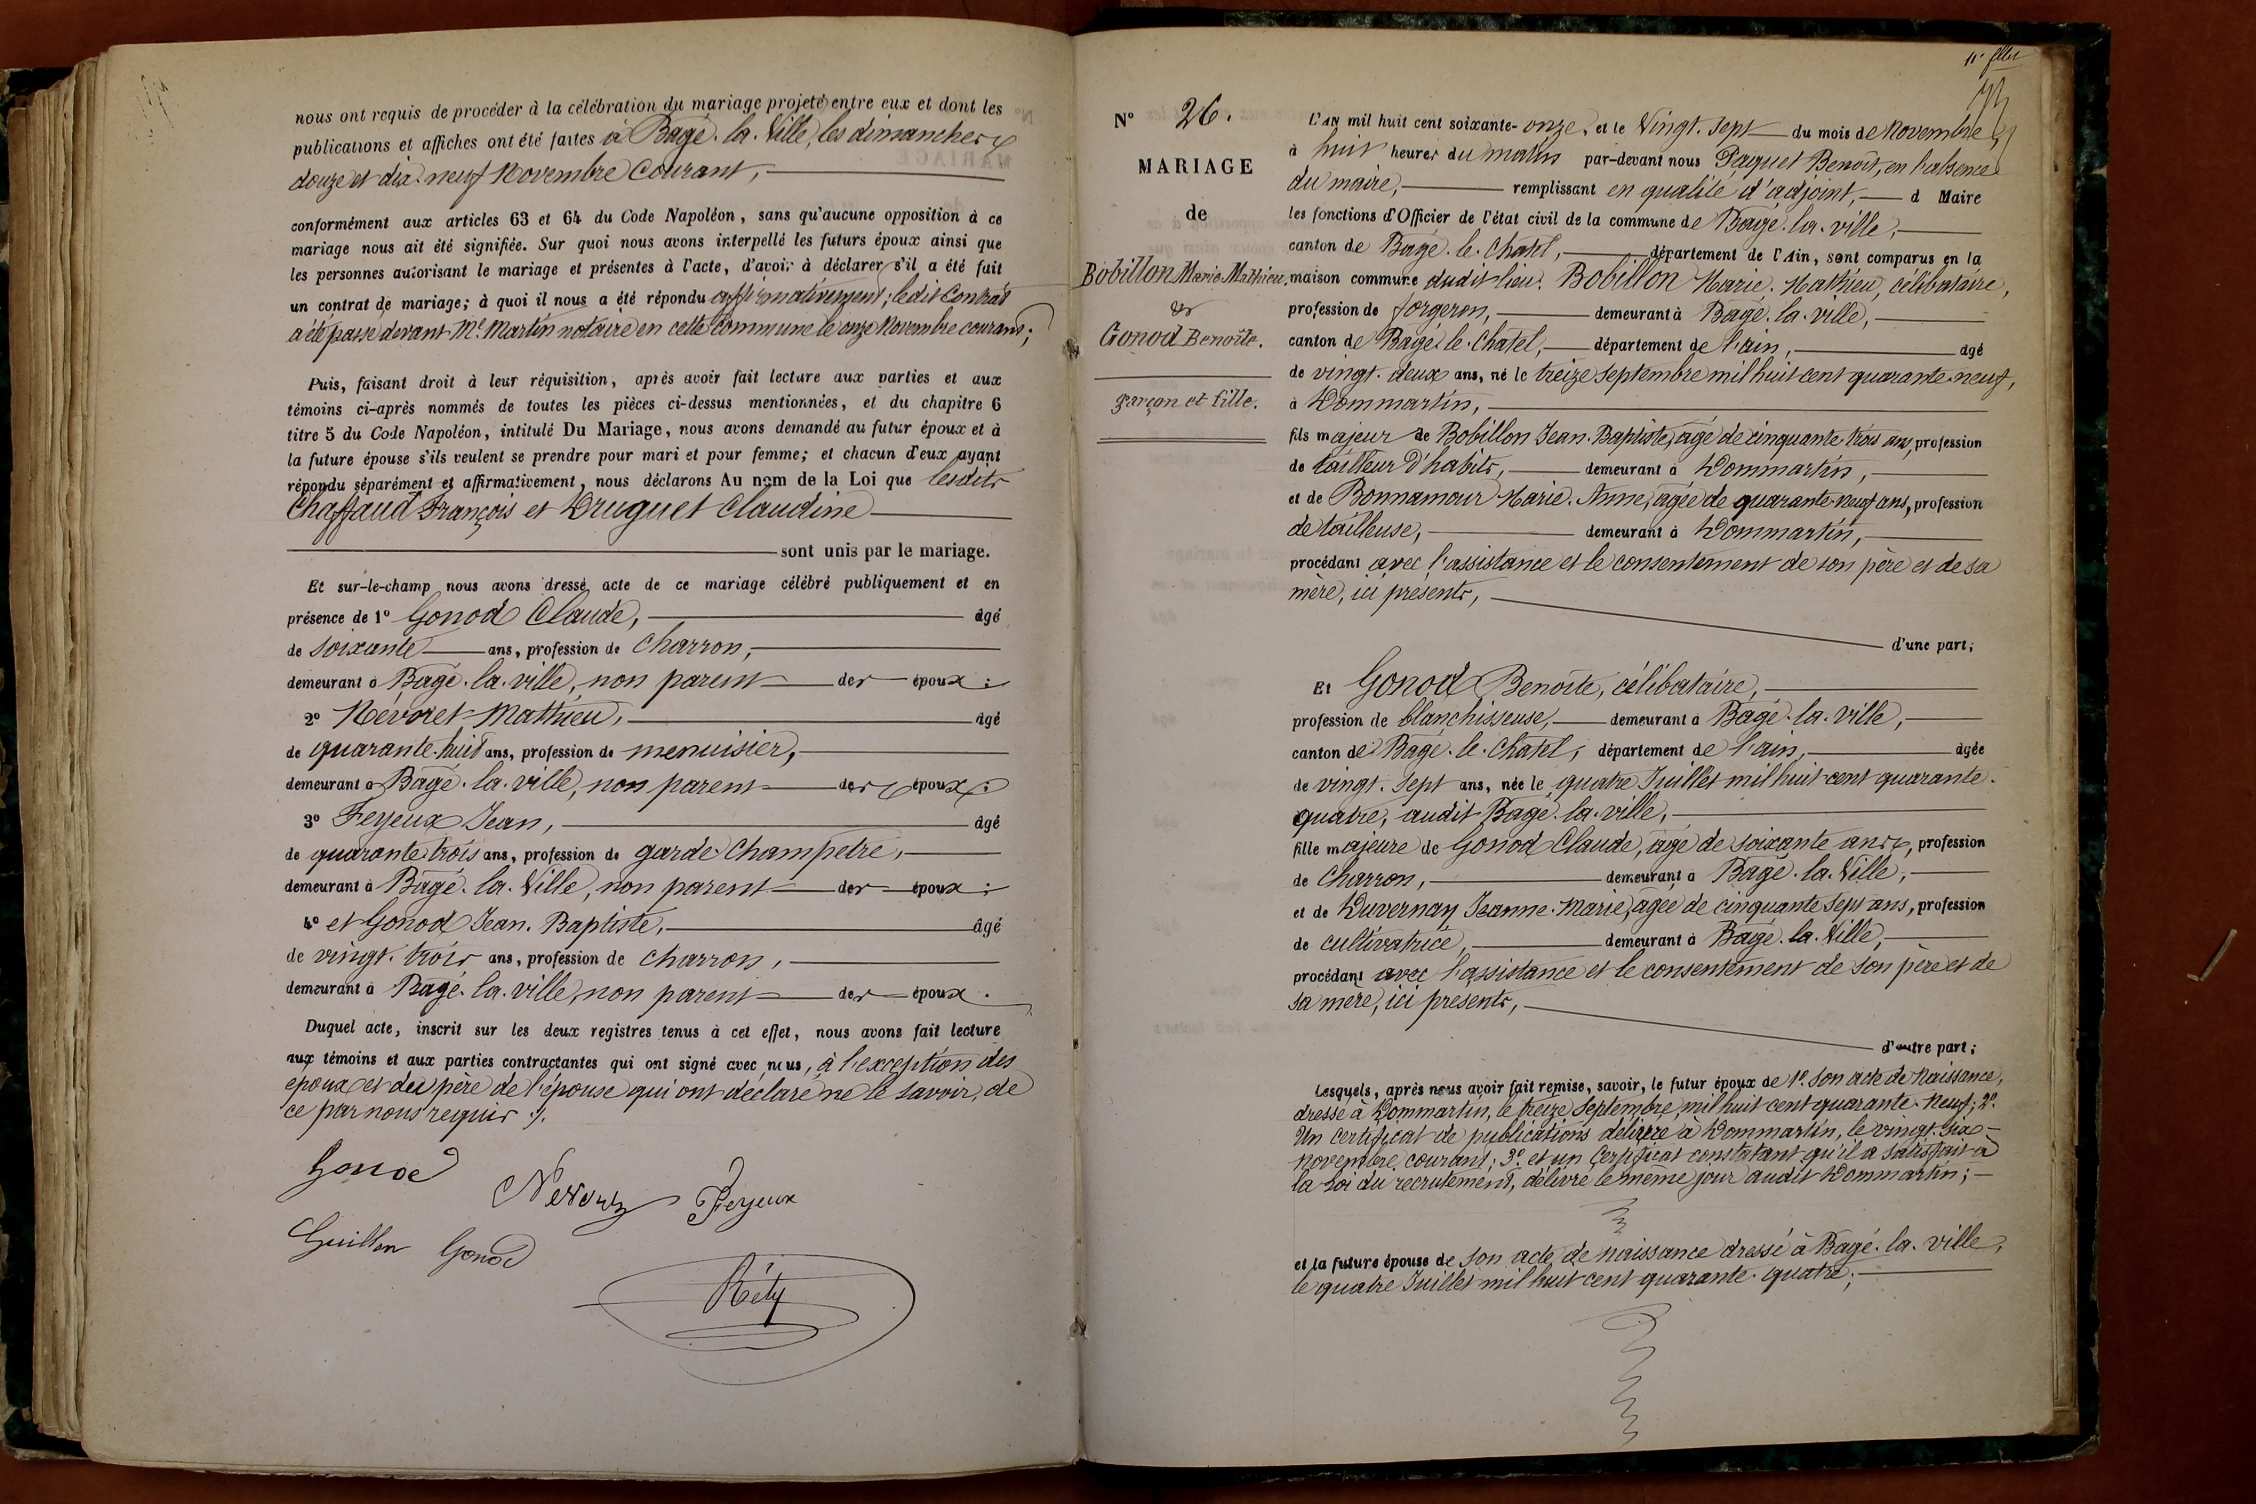 nous ont requis de procéder à la célébration du mariage projeté entre eux et dont les
publications et affiches ont été faites à Bagé-la-Ville, les dimanches
douze et dix-neuf Novembre courant,
conformément aux articles 63 et 64 du Code Napoléon, sans qu'aucune opposition à ce
mariage nous ait été signifiée. Sur quoi nous avons interpellé les futurs époux ainsi que
les personnes autorisant le mariage et présentes à l'acte, d'avoir à déclarer s'il a été fait
un contrat de mariage; à quoi il nous a été répondu affirmativement; ledit Contrat
a été passé devant Me. Martin notaire en cette commune le onze Novembre courant;
Puis, faisant droit à leur réquisition, après avoir fait lecture aux parties et aux
témoins ci-après nommés de toutes les pièces ci-dessus mentionnées, et du chapitre 6
titre 5 du Code Napoléon, intitulé Du Mariage, nous avons demandé au futur époux et à
la future épouse s'ils veulent se prendre pour mari et pour femme; et chacun d'eux ayant
répondu séparément et affirmativement, nous déclarons Au nom de la Loi que lesdits
Chaffaud François et Druguet Claudine
sont unis par le mariage.
Et sur-le-champ nous avons dressé acte de ce mariage célébré publiquement et en
présence de 1° Gonod Claude, âgé
de soixante ans, profession de charron,
demeurant à Bagé-la-ville, non parent des époux;
2° Névoret Mathieu, âgé
de quarante-huit ans, profession de menuisier,
demeurant à Bagé-la-ville, non parent des époux;
3° Feyeux Jean, âgé
de quarante trois ans, profession de garde Champêtre,
demeurant à Bagé-la-Ville, non parent des époux;
4° et Gonod Jean-Baptiste, âgé
de vingt-trois ans, profession de charron,
demeurant à Bagé-la-ville, non parent des époux.
Duquel acte, inscrit sur les deux registres tenus à cet effet, nous avons fait lecture
aux témoins et aux parties contractantes qui ont signé avec nous, à l'exception des
époux et du père de l'épouse qui ont déclaré ne le savoir, de
ce par nous requis ./.
Gonod
Nevoret Feyeux
Guillon Gonod
Réty
N° 26.
MARIAGE
de
Bobillon Marie Mathieu.
&
Gonod Benoîte.
garçon et fille.
L'an mil huit cent soixante-onze, et le Vingt-sept du mois de Novembre,
à huit heures du matin par-devant nous Paquet Benoît, en l'absence
du maire, remplissant en qualité d'adjoint, d Maire
les fonctions d'Officier de l'état civil de la commune de Bagé-la-ville,
canton de Bagé-le-Chatel, département de l'Ain, sont comparus en la
maison commune dudit lieu. Bobillon Marie-Mathieu, célibataire,
profession de forgeron, demeurant à Bagé-la-ville,
canton de Bagé-le-Chatel, département de l'ain, âgé
de vingt-deux ans, né le treize septembre mil huit cent quarante-neuf,
à Dommartin,
fils majeur de Bobillon Jean-Baptiste, âgé de cinquante trois ans, profession
de tailleur d'habits, demeurant à Dommartin,
et de Bonnamour Marie-Anne, âgée de quarante-neuf ans, profession
de tailleuse, demeurant à Dommartin,
procédant avec l'assistance et le consentement de son père et de sa
mère, ici présents,
d'une part;
Et Gonod Benoîte, célibataire,
profession de blanchisseuse, demeurant à Bagé-la-ville,
canton de Bagé-le-Chatel, département de l'ain, âgée
de vingt-sept ans, née le quatre Juillet mil huit cent quarante-
quatre, audit Bagé-la-ville,
fille majeure de Gonod Claude, âgé de soixante ans, profession
de Charron, demeurant à Bagé-la-Ville,
et de Duvernay Jeanne-Marie, âgée de cinquante sept ans, profession
de cultivatrice, demeurant à Bagé-la-Ville,
procédant avec l'assistance et le consentement de son père et de
sa mère, ici présents,
d'autre part;
Lesquels, après nous avoir fait remise, savoir, le futur époux de 1° son acte de Naissance,
dressé à Dommartin, le treize Septembre mil huit cent quarante-neuf; 2°
Un certificat de publications délivré à Dommartin, le vingt-six
novembre courant; 3° et un certificat constatant qu'il a satisfait à
la Loi du recrutement, délivré le même jour audit Dommartin;
et la future épouse de son acte de naissance dressé à Bagé-la-ville,
le quatre Juillet mil huit cent quarante-quatre;